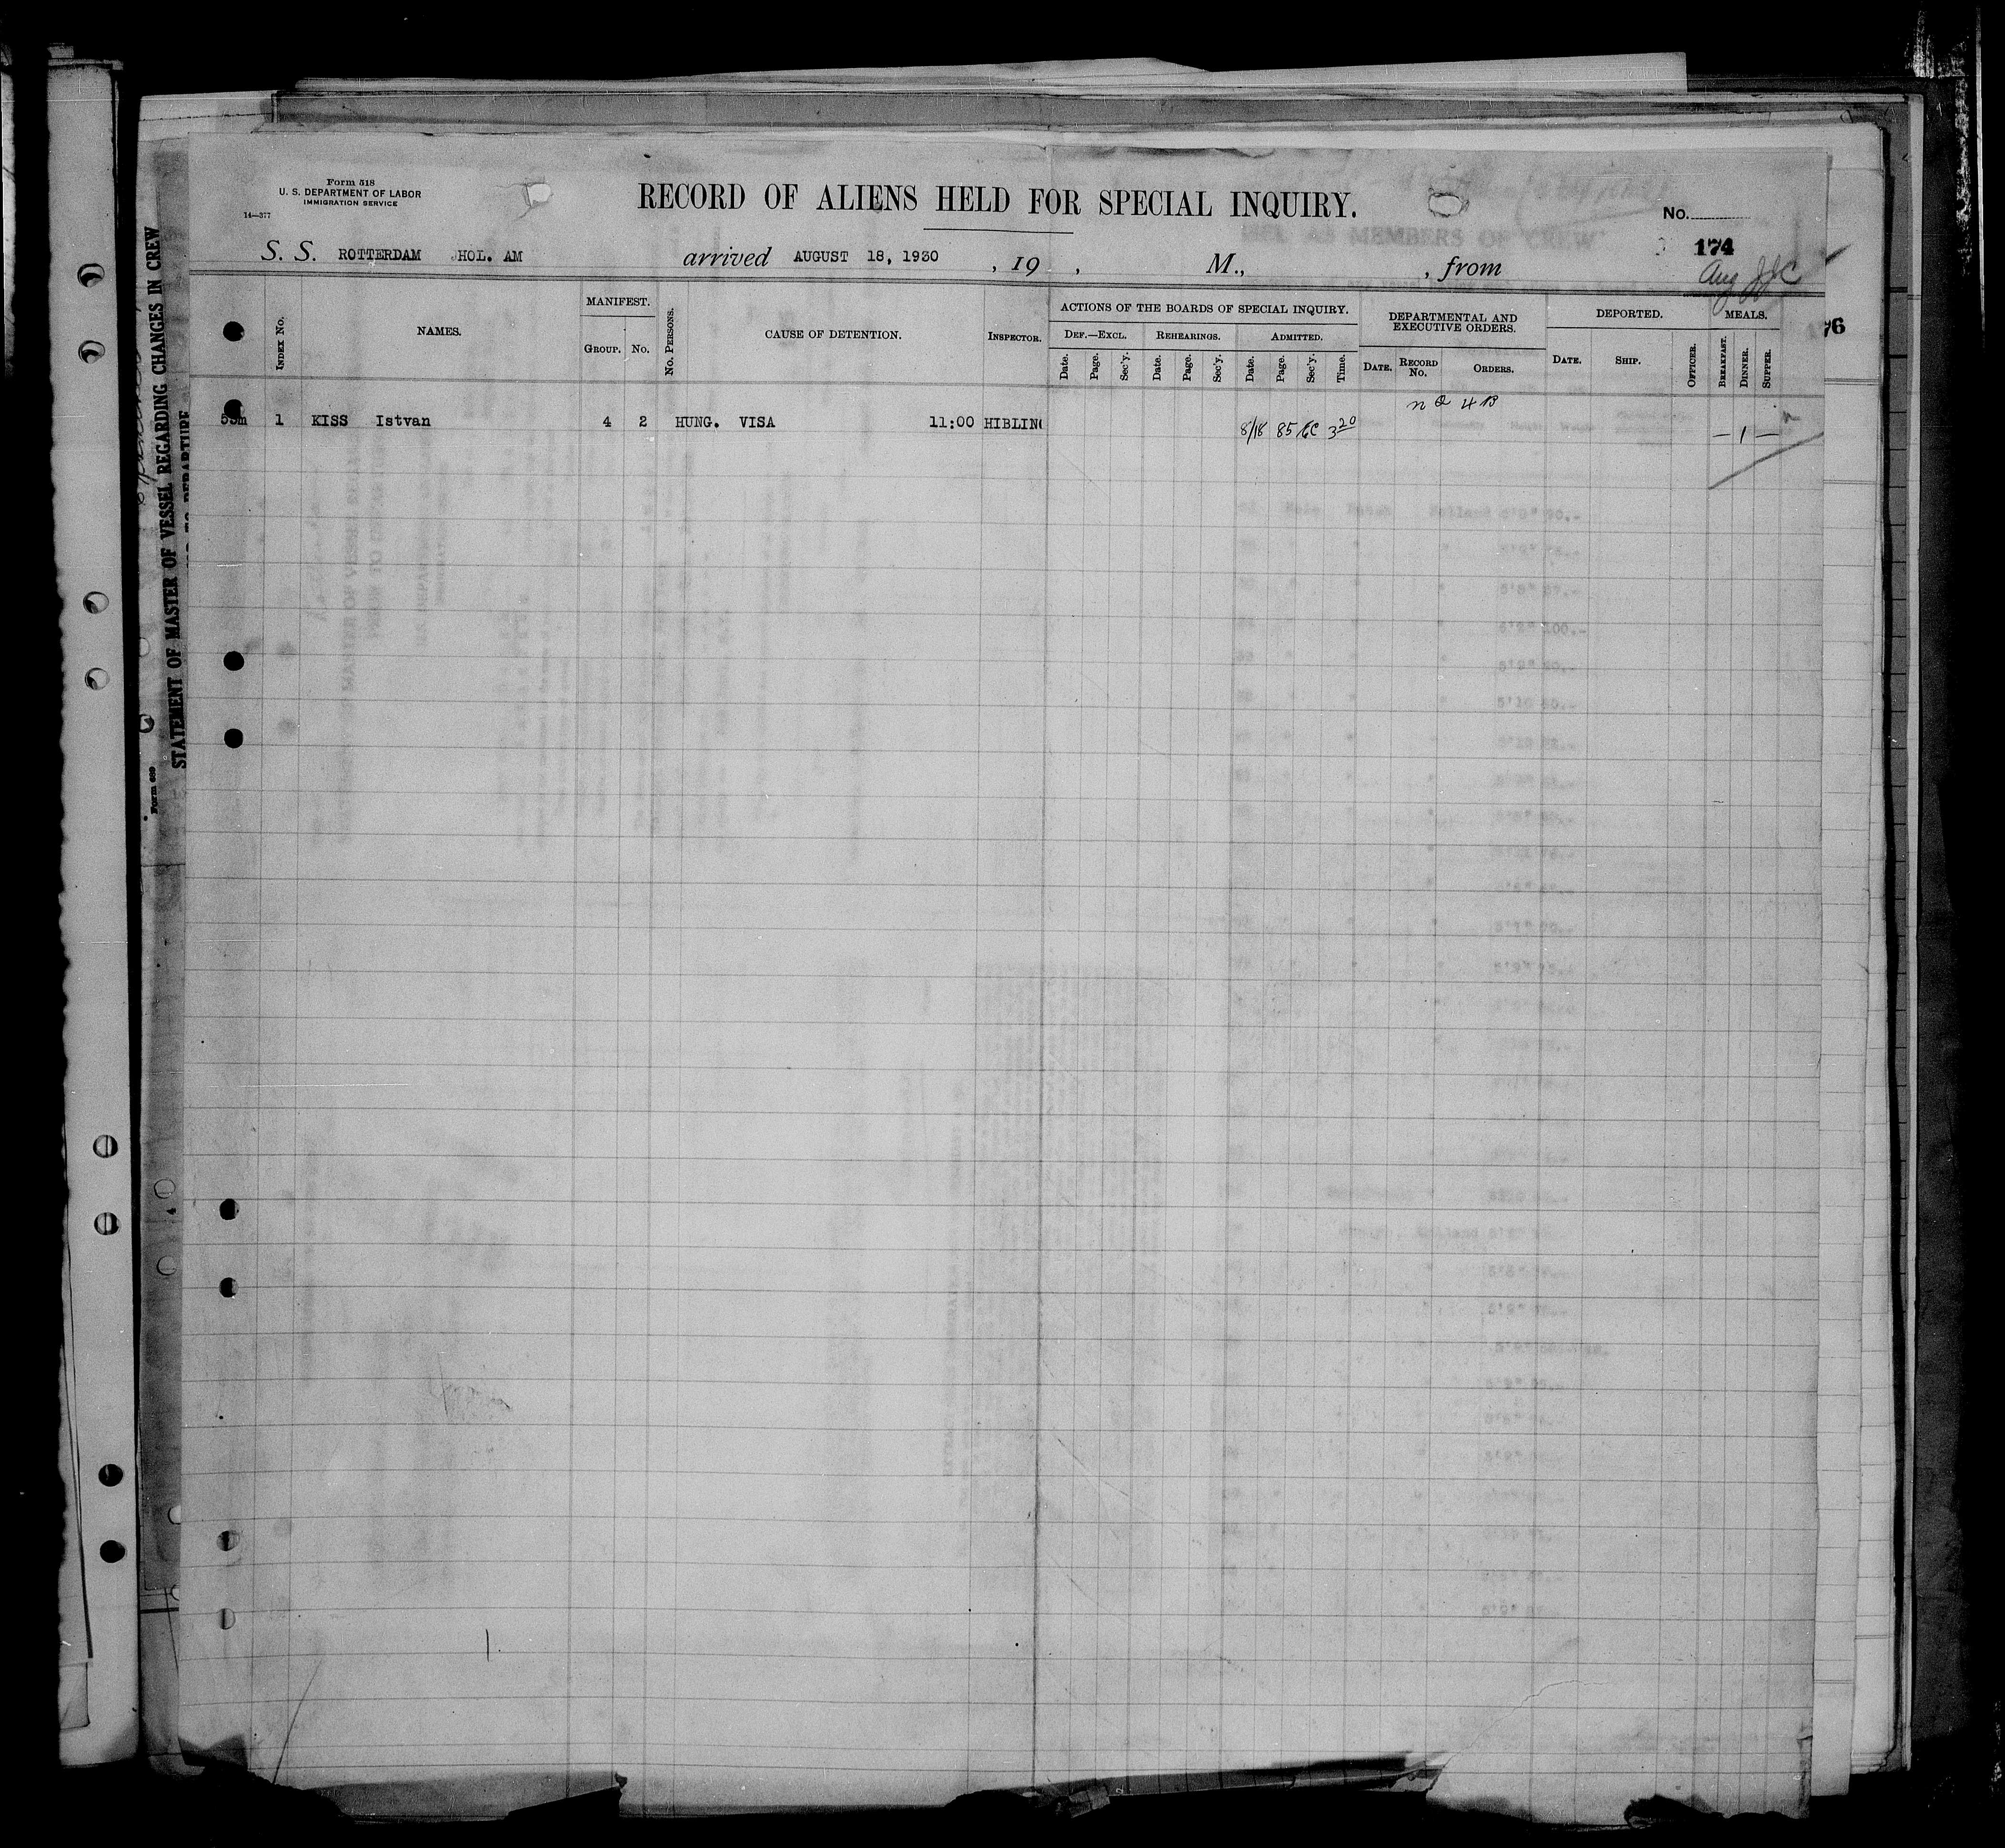 Form 518
U. S. DEPARTMENT OF LABOR
IMMIGRATION SERVICE
14—377
RECORD OF ALIENS HELD FOR SPECIAL INQUIRY.
No.
174
S. S. ROTTERDAM HOL. AM arrived AUGUST 18, 1930 , 19 , M., , from
Aug
76
INDEX No.
NAMES.
MANIFEST.
GROUP. No.
No. PERSONS.
CAUSE OF DETENTION.
INSPECTOR.
ACTIONS OF THE BOARDS OF SPECIAL INQUIRY.
DEF.—EXCL. REHEARINGS. ADMITTED.
Date. Page. Sec'y. Date. Page. Sec'y. Date. Page. Sec'y. Time.
DEPARTMENTAL AND EXECUTIVE ORDERS.
DATE. RECORD No. ORDERS.
DEPORTED.
DATE. SHIP. OFFICER.
MEALS.
BREAKFAST. DINNER. SUPPER.
1 KISS Istvan 4 2 HUNG. VISA 11:00 HIBLING 8/18 85 3 20 — 1 —
STATEMENT OF MASTER OF VESSEL REGARDING CHANGES IN CREW
Form 689